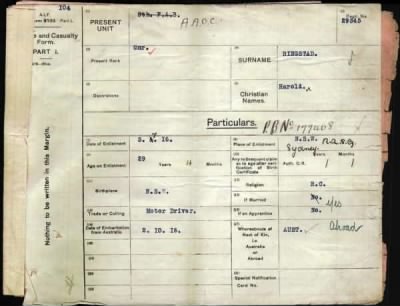 104
A.I.F.
Part I.
and Casualty
Form.
PART I.
Nothing to be written in this Margin.
PRESENT
UNIT
5th. F.A.B.
A.A.O.C.
29345
Present Rank
Gnr.
SURNAME
RINGSTAD.
Decorations
Christian
Names.
Harold.
Particulars.
Date of Enlistment
16.
Place of Enlistment
N.S.W.
Sydney R.A.S.G.
Age on Enlistment
29
Years
Months
Any subsequent claim
as to age after verification
of Birth
Certificate
Auth. C.R.
Birthplace
N.S.W.
Religion
R.C.
If Married
No. yes
Trade or Calling
Motor Driver.
If an Apprentice
No.
Date of Embarkation
from Australia
2. 10. 16.
Whereabouts of
Next of Kin, i.e.
Australia
or
Abroad
AUST.
Abroad
Special Notification
Card No.